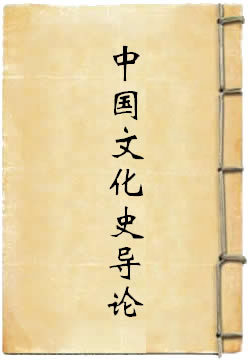 中国文化史导论